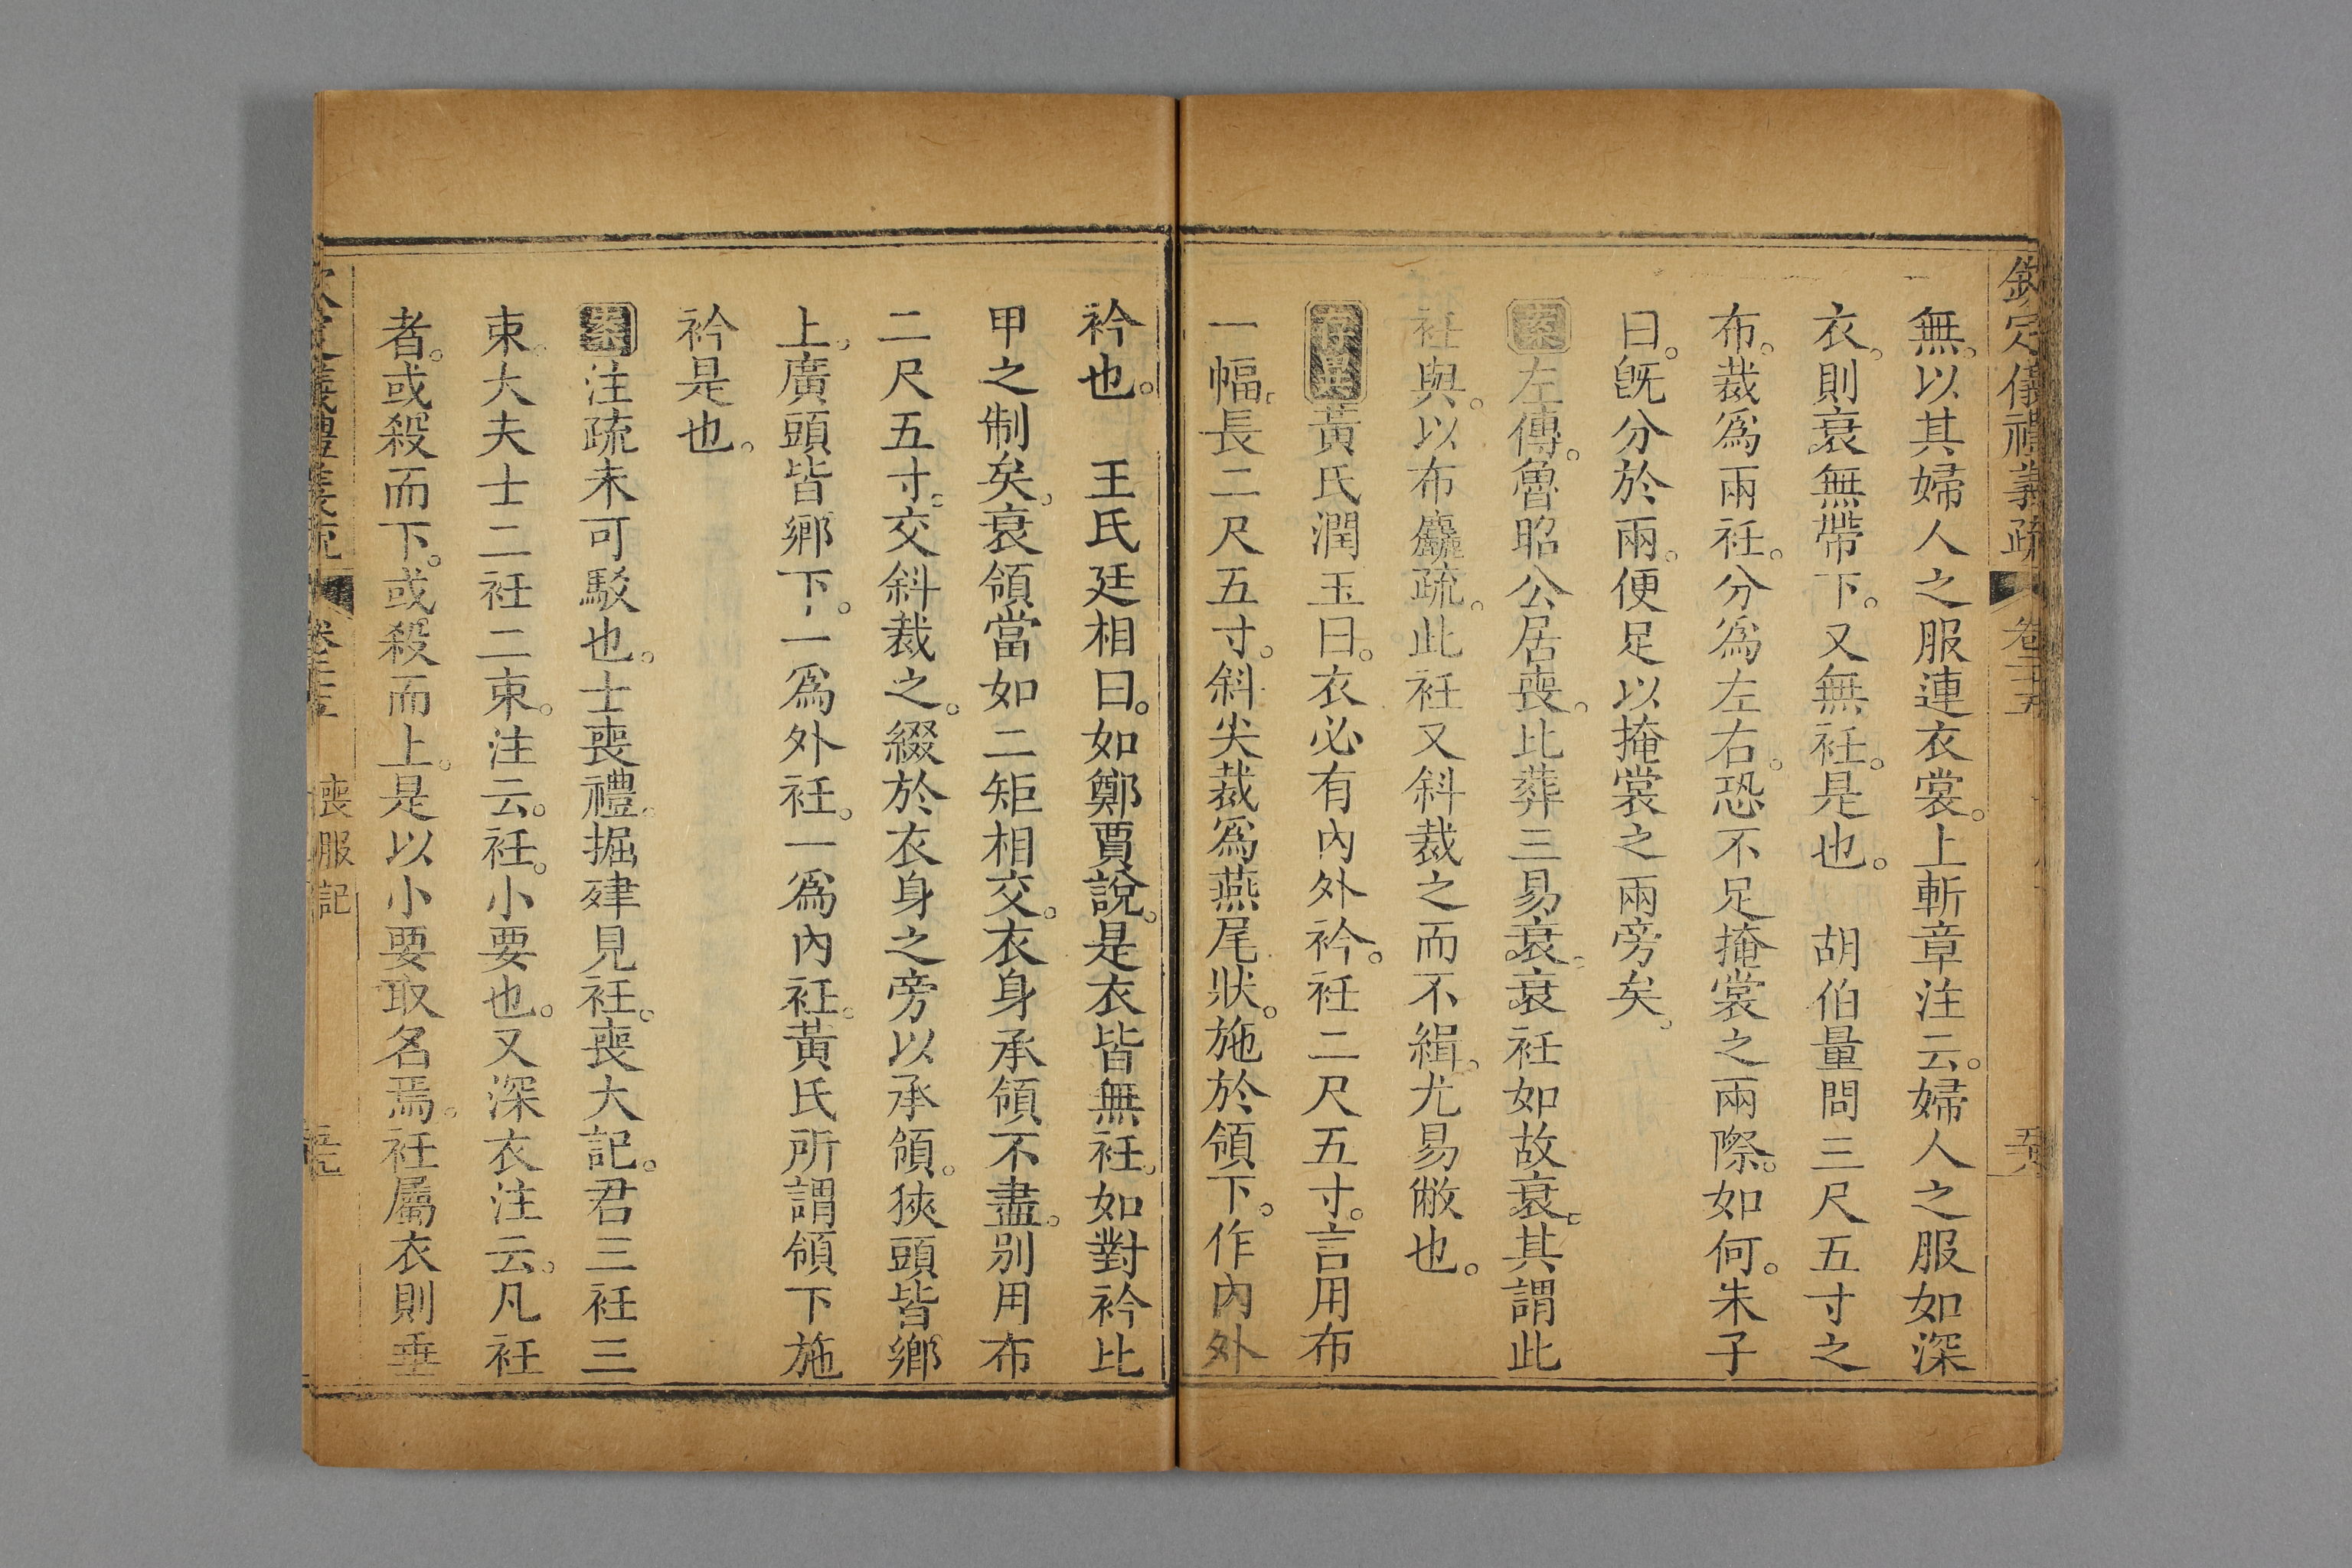 欽定儀禮義疏 卷二十五
無。以其婦人之服連衣裳。上斬章注云。婦人之服如深
衣。則衰無帶下。又無衽。是也　胡伯量問三尺五寸之
布。裁為兩衽。分為左右。恐不足掩裳之兩際。如何。朱子
曰。旣分於兩。便足以掩裳之兩旁矣。
案左傳。魯昭公居喪。比葬三易衰。衰衽如故衰。其謂此
衽與。以布麤疏。此衽又斜裁之而不緝。尤易敝也。
存異黃氏潤玉曰。衣必有內外衿。衽二尺五寸。言用布
一幅。長二尺五寸。斜尖裁為燕尾狀。施於領下。作內外
衿也。　王氏廷相曰。如鄭賈說。是衣皆無衽。如對衿比
甲之制矣。衰領當如二矩相交。衣身承領不盡。別用布
二尺五寸。交斜裁之。綴於衣身之旁以承領。狹頭皆鄉
上。廣頭皆鄉下。一為外衽。一為內衽。黃氏所謂領下施
衿是也。
案注疏未可駁也。士喪禮。掘肂見衽。喪大記。君三衽三
束。大夫士二衽二束。注云。衽。小要也。又深衣注云。凡衽
者。或殺而下。或殺而上。是以小要取名焉。衽屬衣則垂
欽定儀禮義疏 卷二十五 喪服記